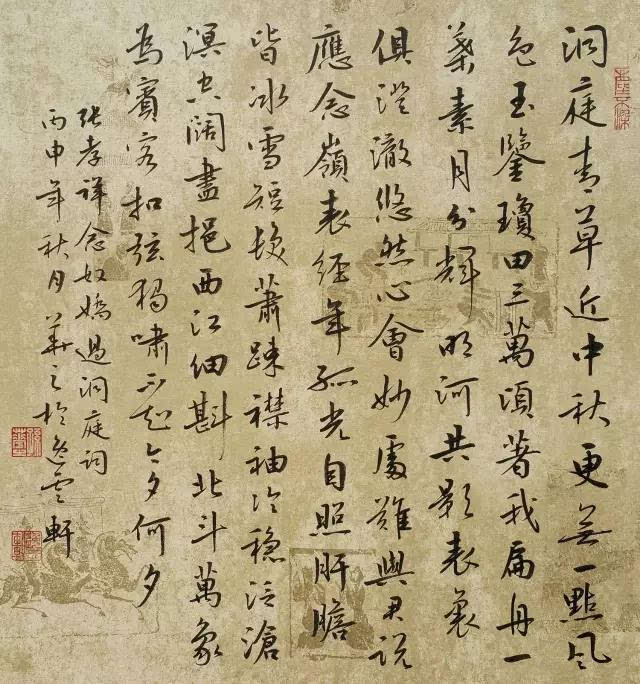 洞庭青草近中秋更無一點風
色玉鑒瓊田三萬頃著我扁舟一
葉素月分輝明河共影表裏
俱澄澈悠然心會妙處難與君說
應念嶺表經年孤光自照肝膽
皆冰雪短髮蕭疎襟袖冷穩泛滄
溟空闊盡挹西江細斟北斗萬象
為賓客扣弦獨嘯不知今夕何夕
張孝祥念奴嬌過洞庭詞
丙申年秋月華之於逸雲軒